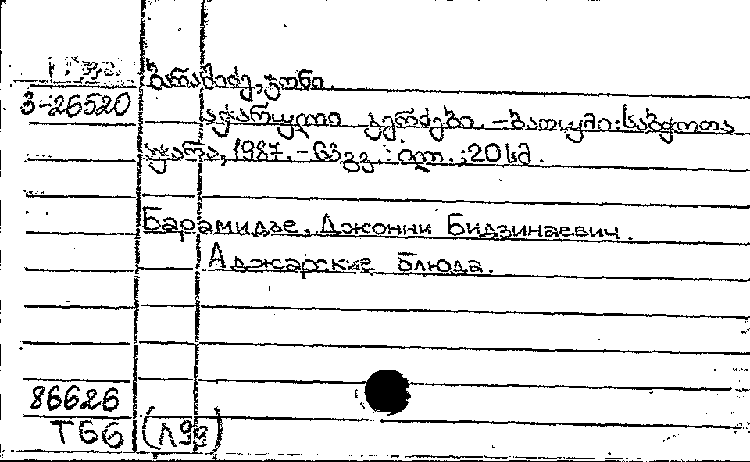 ბარამიძე, ჯონი.
3-26520
აჭარული კერძები. – ბათუმი: საბჭოთა
აჭარა, 1987. – 63 გვ. : ილ. ; 20 სმ.
Барамидзе, Джонни Бидзинаевич.
Аджарские блюда.
86626
T66 (Л99)